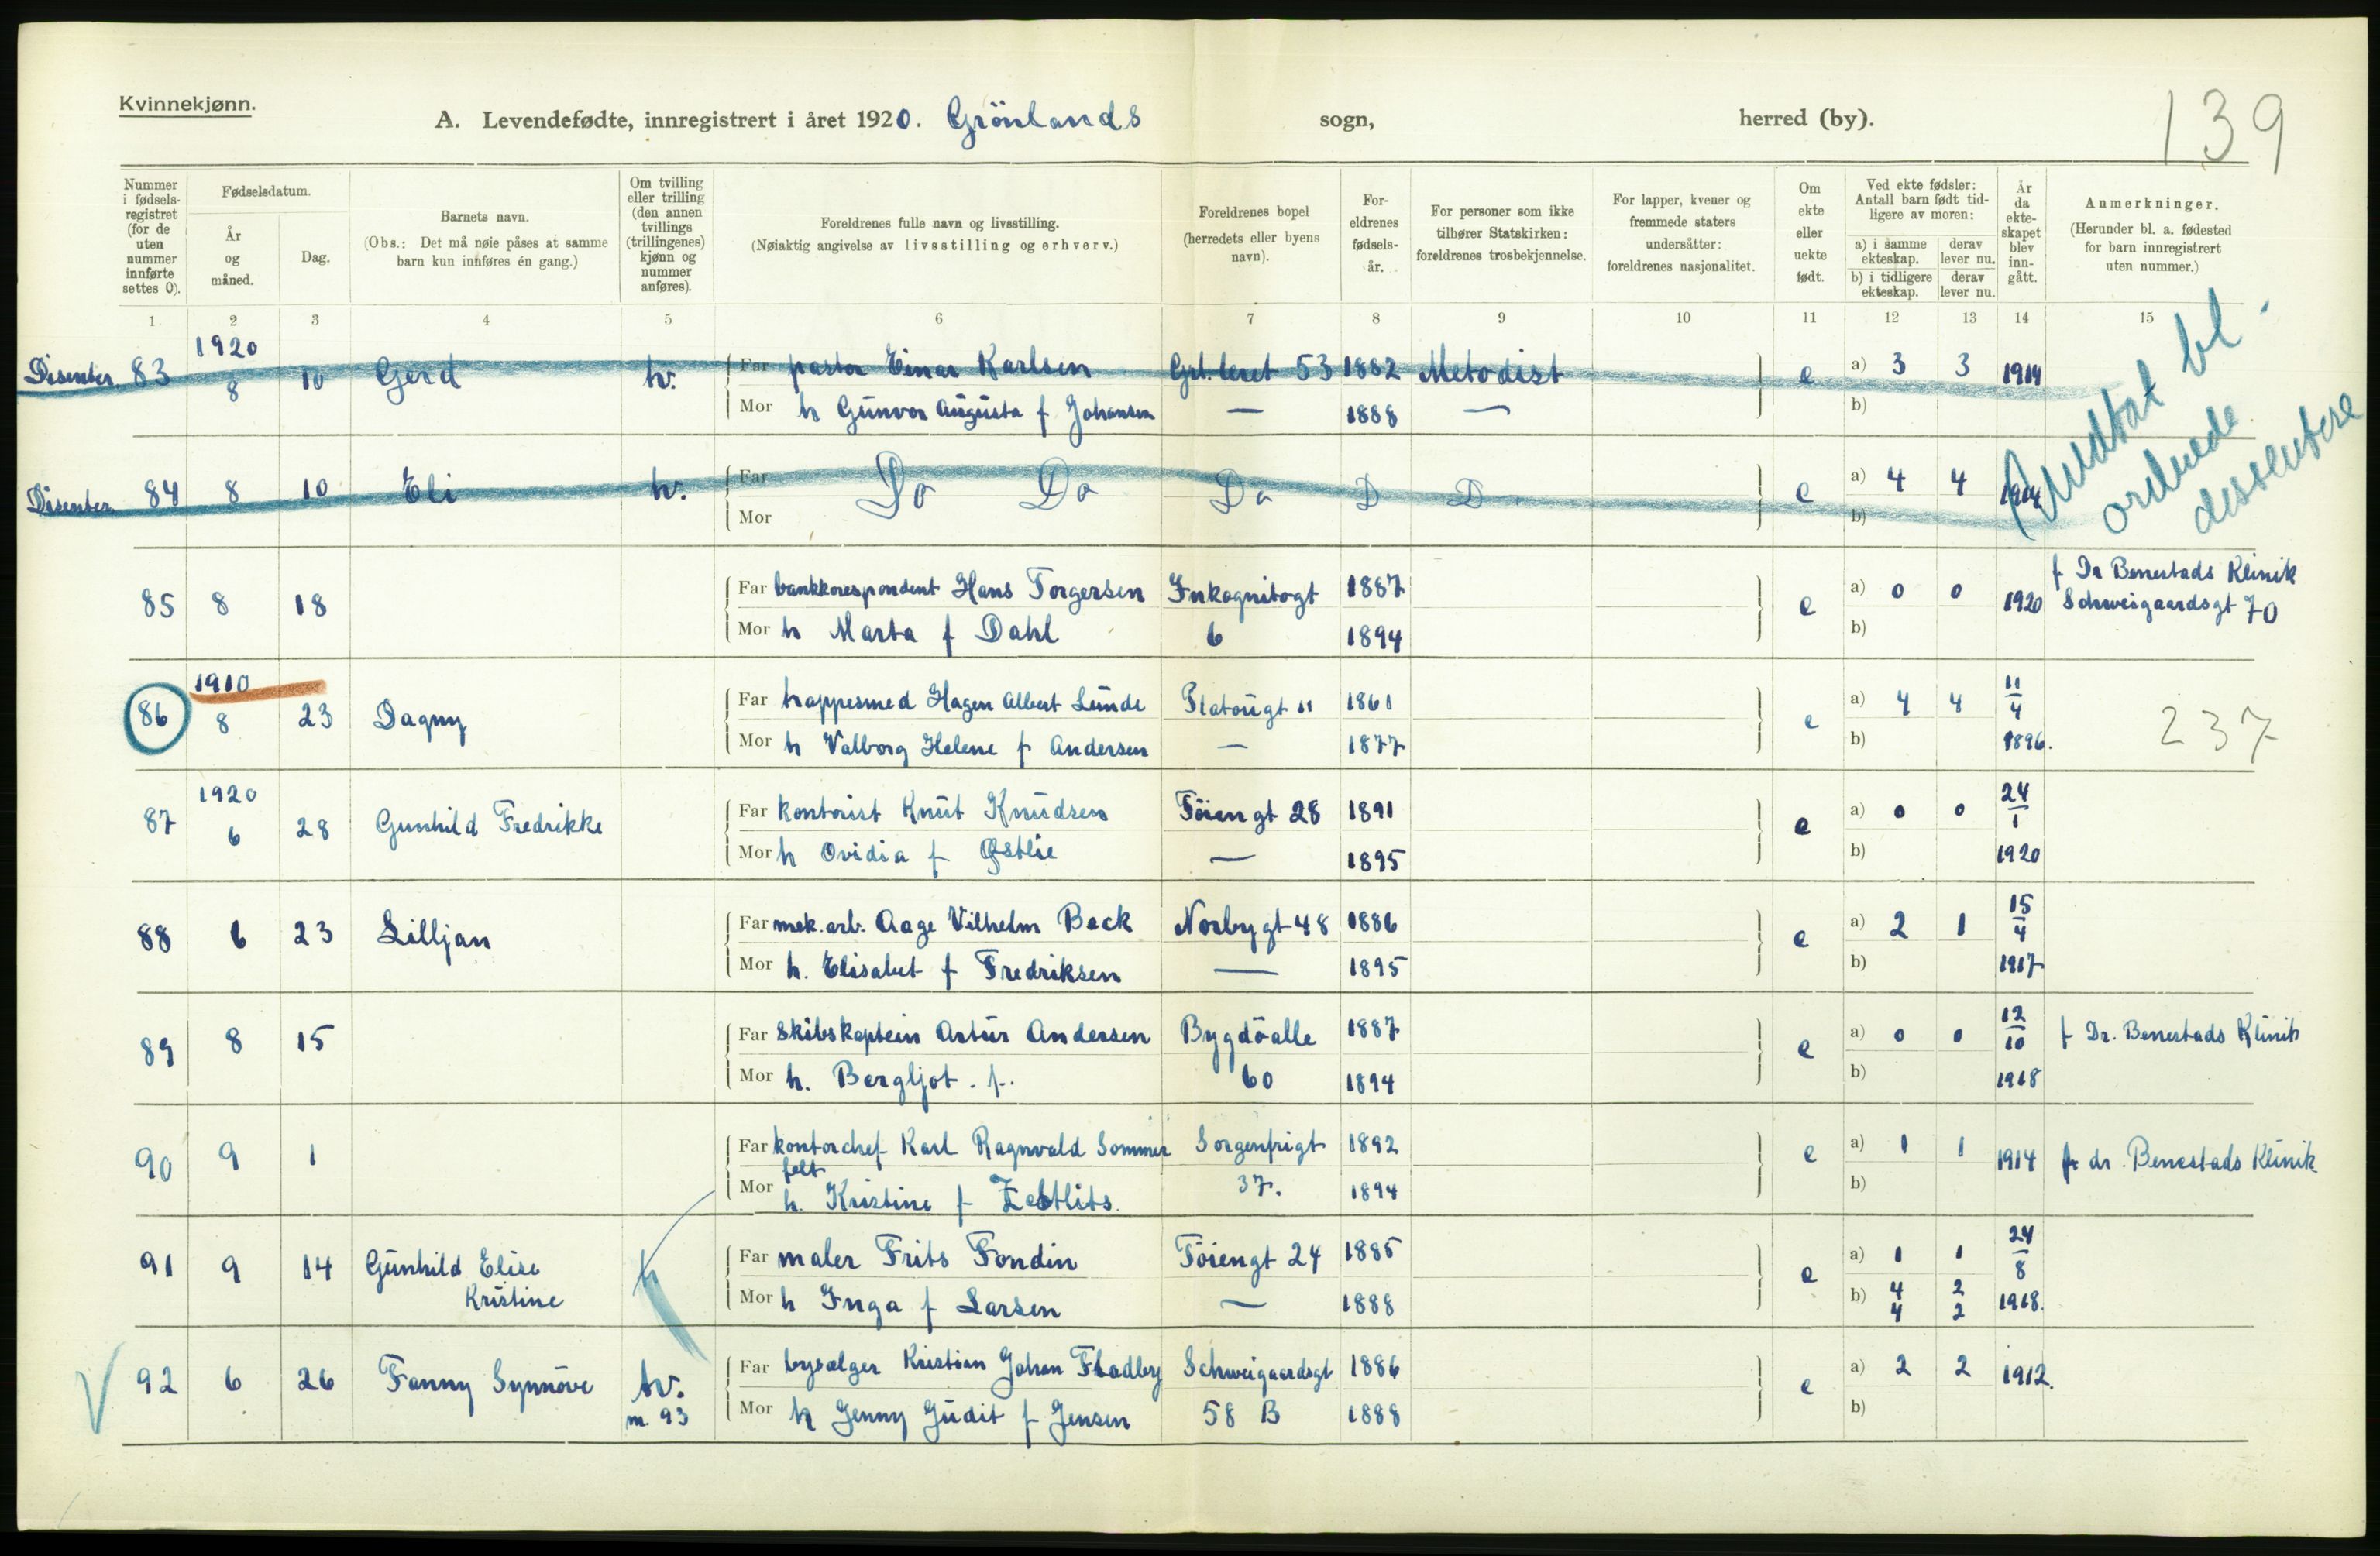 Kvinnekjønn.
A. Levendefødte, innregistrert i året 1920. Grönlands sogn, herred (by).
139
Nummer i fødsels-registret (for de uten nummer innførte settes 0).
Fødselsdatum.
År og måned.
Dag.
Barnets navn.
(Obs.: Det må nøie påses at samme barn kun innføres én gang.)
Om tvilling eller trilling (den annen tvillings (trillingenes) kjønn og nummer anføres).
Foreldrenes fulle navn og livsstilling.
(Nøiaktig angivelse av livsstilling og erhverv.)
Foreldrenes bopel (herredets eller byens navn).
For-eldrenes fødsels-år.
For personer som ikke tilhører Statskirken: foreldrenes trosbekjennelse.
For lapper, kvener og fremmede staters undersåtter: foreldrenes nasjonalitet.
Om ekte eller uekte født.
Ved ekte fødsler: Antall barn født tid-ligere av moren:
a) i samme ekteskap. derav lever nu.
b) i tidligere ekteskap. derav lever nu.
År da ekte-skapet blev inn-gått.
Anmerkninger.
(Herunder bl. a. fødested for barn innregistrert uten nummer.)
1 2 3 4 5 6 7 8 9 10 11 12 13 14 15
1920
Disenter 83 8 10 Gerd tv. Far pastor Einar Karlsen Grl. leret 53 1882 Metodist e a) 3 3 1914
Mor h Gunvor Augusta f Johansen — 1888 — b)
bl.
ordnede
dissentere
Disenter 84 8 10 Eli tv. Far Do Do Do D D e a) 4 4 1914
Mor b)
85 8 18 Far bankkorespondent Hans Torgersen Inkognitogt 1887 e a) 0 0 1920 f Dr Benestads Klinik
Schweigaardsgt 70
Mor h Marta f Dahl 6 1894 b)
1910
86 8 23 Dagny Far trappesmed Hagen Albert Lunde Platougt 11 1861 e a) 4 4 11/4 1896. 237
Mor h Valborg Helene f Andersen — 1877 b)
1920
87 6 28 Gunhild Fredrikke Far kontorist Knut Knudsen Töiengt 28 1891 e a) 0 0 24/1 1920
Mor h Ovidia f Østlie — 1895 b)
88 6 23 Lilljan Far mek. arb. Aage Vilhelm Beck Norbygt 48 1886 e a) 2 1 15/4 1917
Mor h. Elisabet f Fredriksen — 1895 b)
89 8 15 Far Skibskaptein Artur Andersen Bygdöalle 1887 e a) 0 0 12/10 1918 f Dr. Benestads Klinik
Mor h. Bergljot. f. 60 1894 b)
90 9 1 Far kontorchef Karl Ragnvald Sommer Sorgenfrigt 1892 e a) 1 1 1914 f dr. Benestads Klinik
felt
Mor h. Kristine f Zetlits. 37. 1894 b)
91 9 14 Gunhild Elise Far maler Frits Fondin Töiengt 24 1885 e a) 1 1 24/8 1918.
Kristine
Mor h Inga f Larsen — 1888 b) 4 2
4 2
92 6 26 Fanny Synnöve tv. Far bysælger Kristian Johan Fladby Schweigaardsgt 1886 e a) 2 2 1912.
m 93
Mor h Jenny Judit f Jensen 58 B 1888 b)